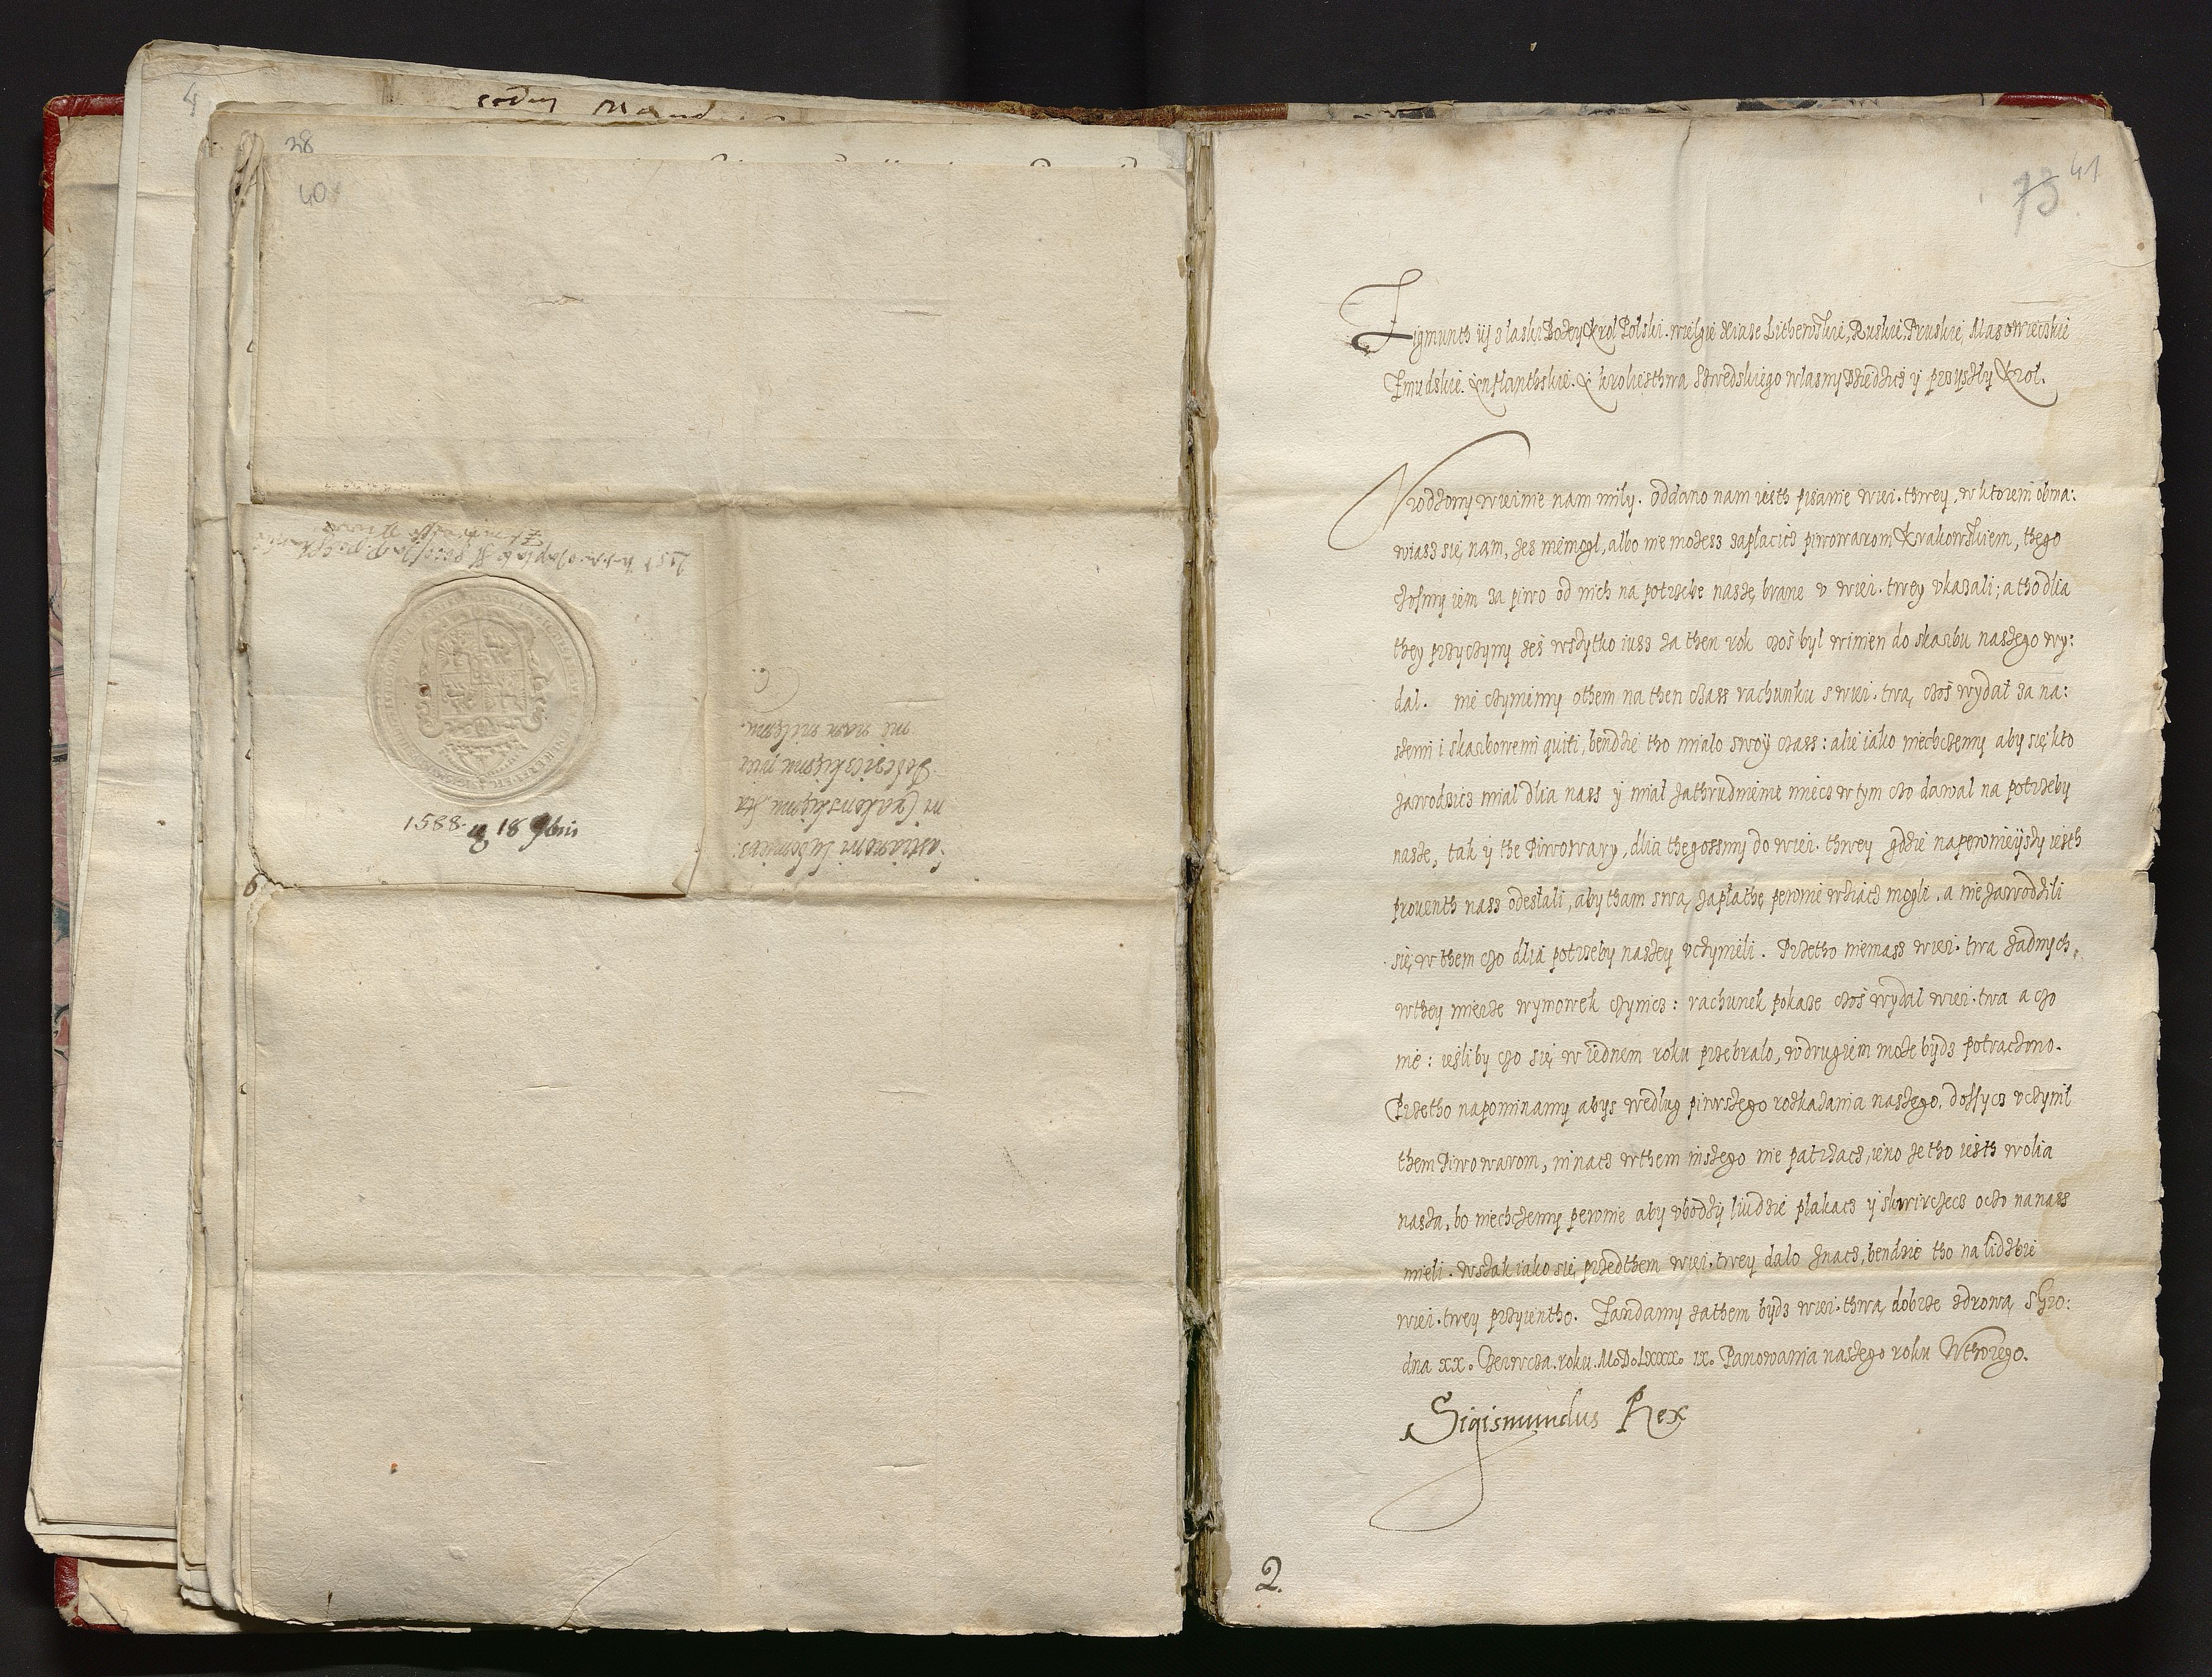 eodem Mand
4
28
40
1588. ij 18 9bris
Sebastianowi Lubomiers:
Dobczickiemu
nam milemu.
6
73 41
Zigmunth iij z laski Bożey Krol Polski. wielgie xiąże Lithewskie, Ruskie, Pruskie, Mazowieczkie
Zmudskie. Inflanthskie. I kroliesthwa Szwedskiego własny Dziedzicz ÿ przyszły Krol.
Vrodzony wiernie nam miły. Oddano nam iesth pisanie wier. thwey, w ktorem obma:
wiasz się nam, żes niemogl, albo nie możesz zaplacicz piwowarom Krakowskiem, thego
czosmy iem za piwo od nich na potrzebe naszę brane v wier. twey vkazali; a tho dlia
they przyczyny żeś wszytko iusz za then rok czoś byl winien do skarbu naszego wy:
dal. nie czynimy othem na then czass rachunku s wier. twą, czoś wydał za na:
szemi i skarbowemi quiti, bendzie tho mialo swoÿ czass: alie iako niechczemy aby się kto
zawodzicz mial dlia nass ÿ mial zathrudnienie miecz w tym czo dawal na potrzeby
nasze, tak ÿ the Piwowary, dlia thegossmy do wier. thwey gdzie napewnieÿszy iesth
prouenth nass odesłali, aby tham swą zapłathę pewnie wziącz mogli, a nie zawodzili
się w them czo dlia potrzeby naszey vczynili. Przetho niemass wier. twa żadnych
wthey mierze wymowek czynicz: rachunek pokaże czoś wydal wier. twa a czo
nie: iesliby czo się w iednem roku przebralo, wdrugiem może bÿdz potrączono.
Przetho napominamy abys według pirwszego roskazania naszego, dossycz vczynił
them Piwowarom, ninacz wthem inszego nie patrzacz, ieno że tho iesth wolia
nasza, bo niechczemy pewnie aby vbodzÿ liudzie plakacz ÿ skwirczecz oczo nanass
mieli. Wszak iako się przedthem wier. twey dalo znacz, bendzie tho na lidzbie
wier. twey przyientho. Zandamy zathem bÿdz wier. thwą dobrze zdrową. S Gro:
dna xx. Czerwcza. roku. M.D.LXXX. IX. Panowania naszego roku Wthorego.
Sigismundus Rex
2.